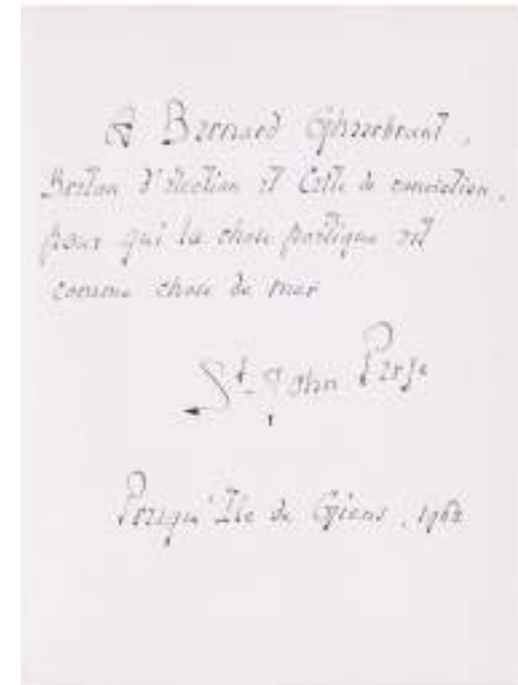 À Bernard Gheerbrant,
Breton d'élection et Celte de conviction,
pour qui la chose poétique est
comme chose de mer
St-John Perse
Presqu'Ile de Giens,